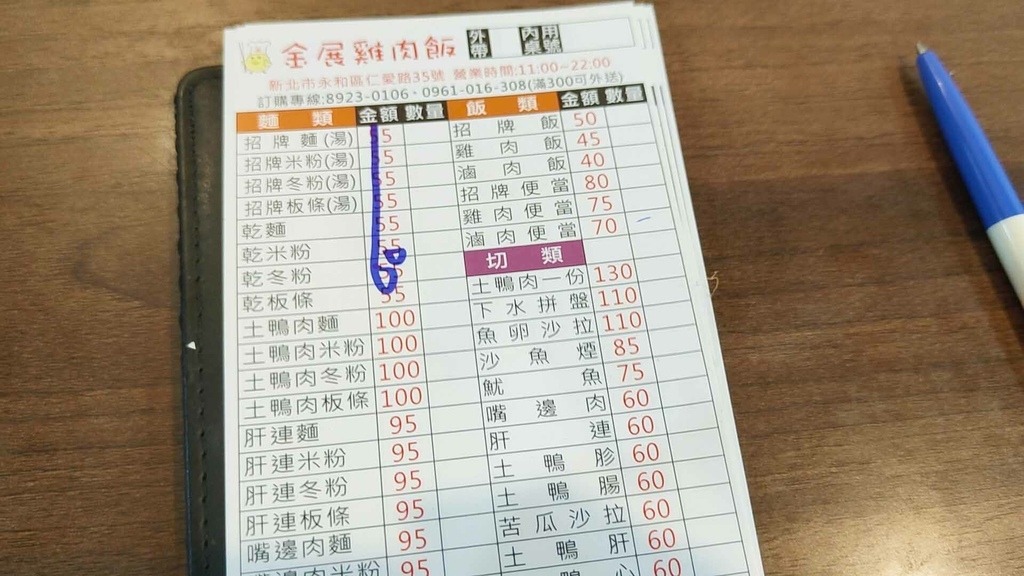 金展雞肉飯 外帶 內用桌號
新北市永和區仁愛路35號 營業時間:11:00~22:00
訂購專線:8923-0106、0961-016-308(滿300可外送)
麵類 金額 數量 飯類 金額 數量
招牌麵(湯) 55 招牌飯 50
招牌米粉(湯) 55 雞肉飯 45
招牌冬粉(湯) 55 滷肉飯 40
招牌板條(湯) 55 招牌便當 80
乾麵 55 雞肉便當 75
乾米粉 55 滷肉便當 70
乾冬粉 60 切類
乾板條 55 土鴨肉一份 130
土鴨肉麵 100 下水拼盤 110
土鴨肉米粉 100 魚卵沙拉 110
土鴨肉冬粉 100 沙魚煙 85
土鴨肉板條 100 魷魚 75
肝連麵 95 嘴邊肉 60
肝連米粉 95 肝連 60
肝連冬粉 95 土鴨胗 60
肝連板條 95 土鴨腸 60
嘴邊肉麵 95 苦瓜沙拉 60
嘴邊肉米粉 95 土鴨肝 60
鴨心 60